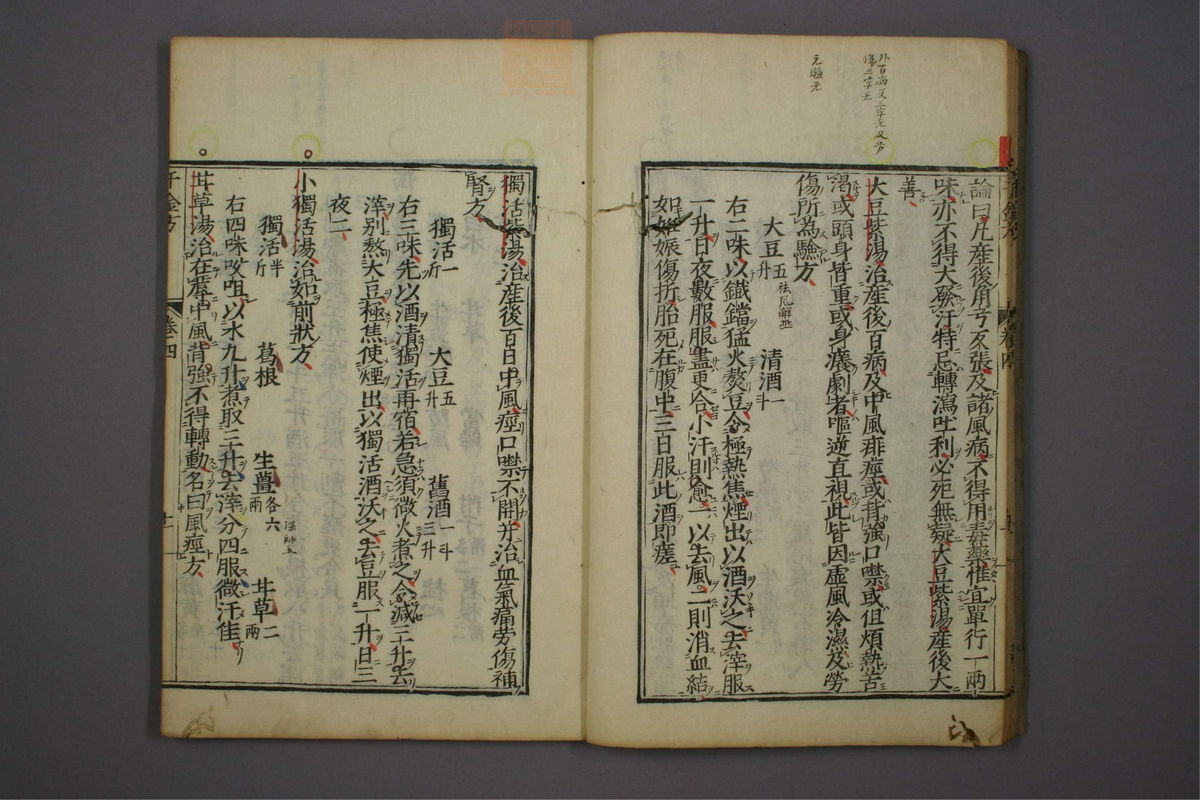 外百病及三字无及労
傷三字无
无驗无
論曰凡産後角弓反張及諸風病不得用毒藥惟宜單行一兩
味亦不得大發汗特忌轉瀉吐利必死無疑大豆紫湯産後大
善
大豆紫湯治産後百病及中風痱痙或背強口噤或但煩熱苦
渇或頭身皆重或身癢劇者嘔逆直視此皆因虚風冷濕及勞
傷所為驗方
大豆五升 清酒一斗
右二味以鐵鐺猛火熬豆令極熱焦煙出以酒沃之去滓服
一升日夜數服服盡更合小汗則愈一以去風二則消血結
如妊娠傷折胎死在腹中三日服此酒即瘥
獨活紫湯治産後百日中風痙口噤不開并治血氣痛勞傷補
腎方
獨活一斤 大豆五升 舊酒一斗三升
右三味先以酒漬獨活再宿若急須微火煮之令減三升去
滓別熬大豆極焦使煙出以獨活酒沃之去豆服一升日三
夜二
小獨活湯治如前狀方
獨活半斤 葛根 生薑各六兩 深師五 甘草二兩
右四味㕮咀以水九升煮取三升去滓分四服微汗佳
甘草湯治在蓐中風背強不得轉動名曰風痙方
千金方 卷四 十一